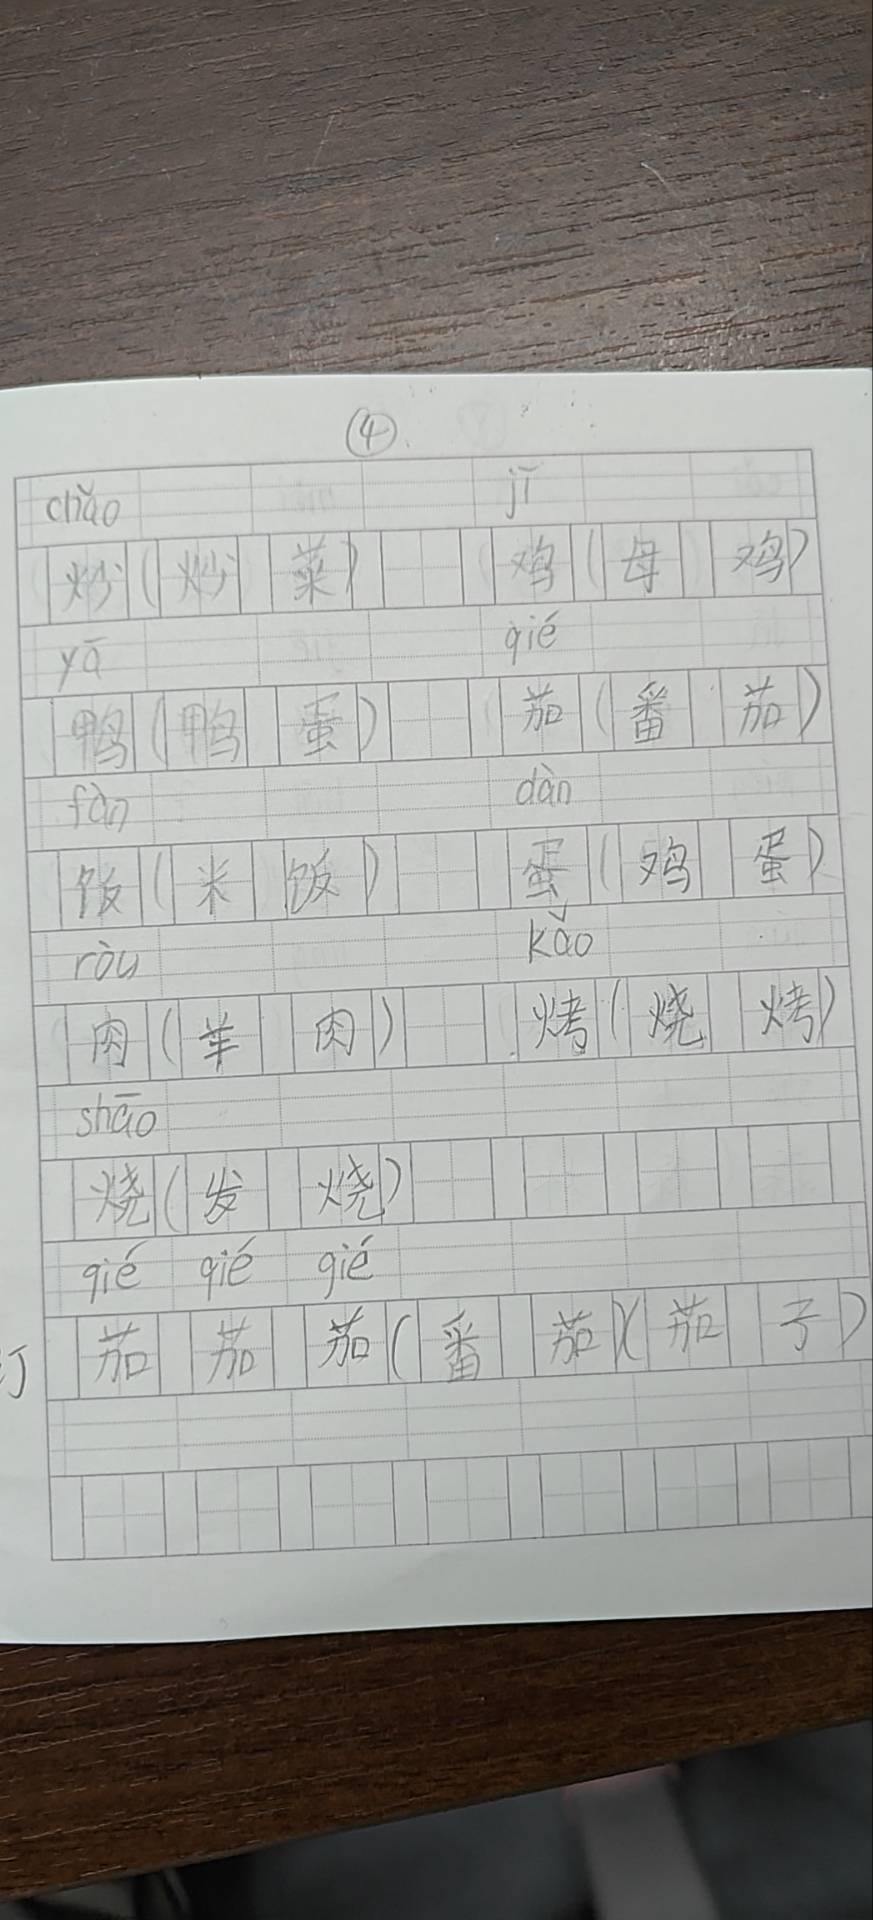 ④
chǎo jī
炒(炒菜) 鸡(母鸡)
yā qié
鸭(鸭蛋) 茄(番茄)
fàn dàn
饭(米饭) 蛋(鸡蛋)
ròu kǎo
肉(羊肉) 烤(烧烤)
shāo
烧(发烧)
qié qié qié
订 茄茄茄(番茄)(茄子)